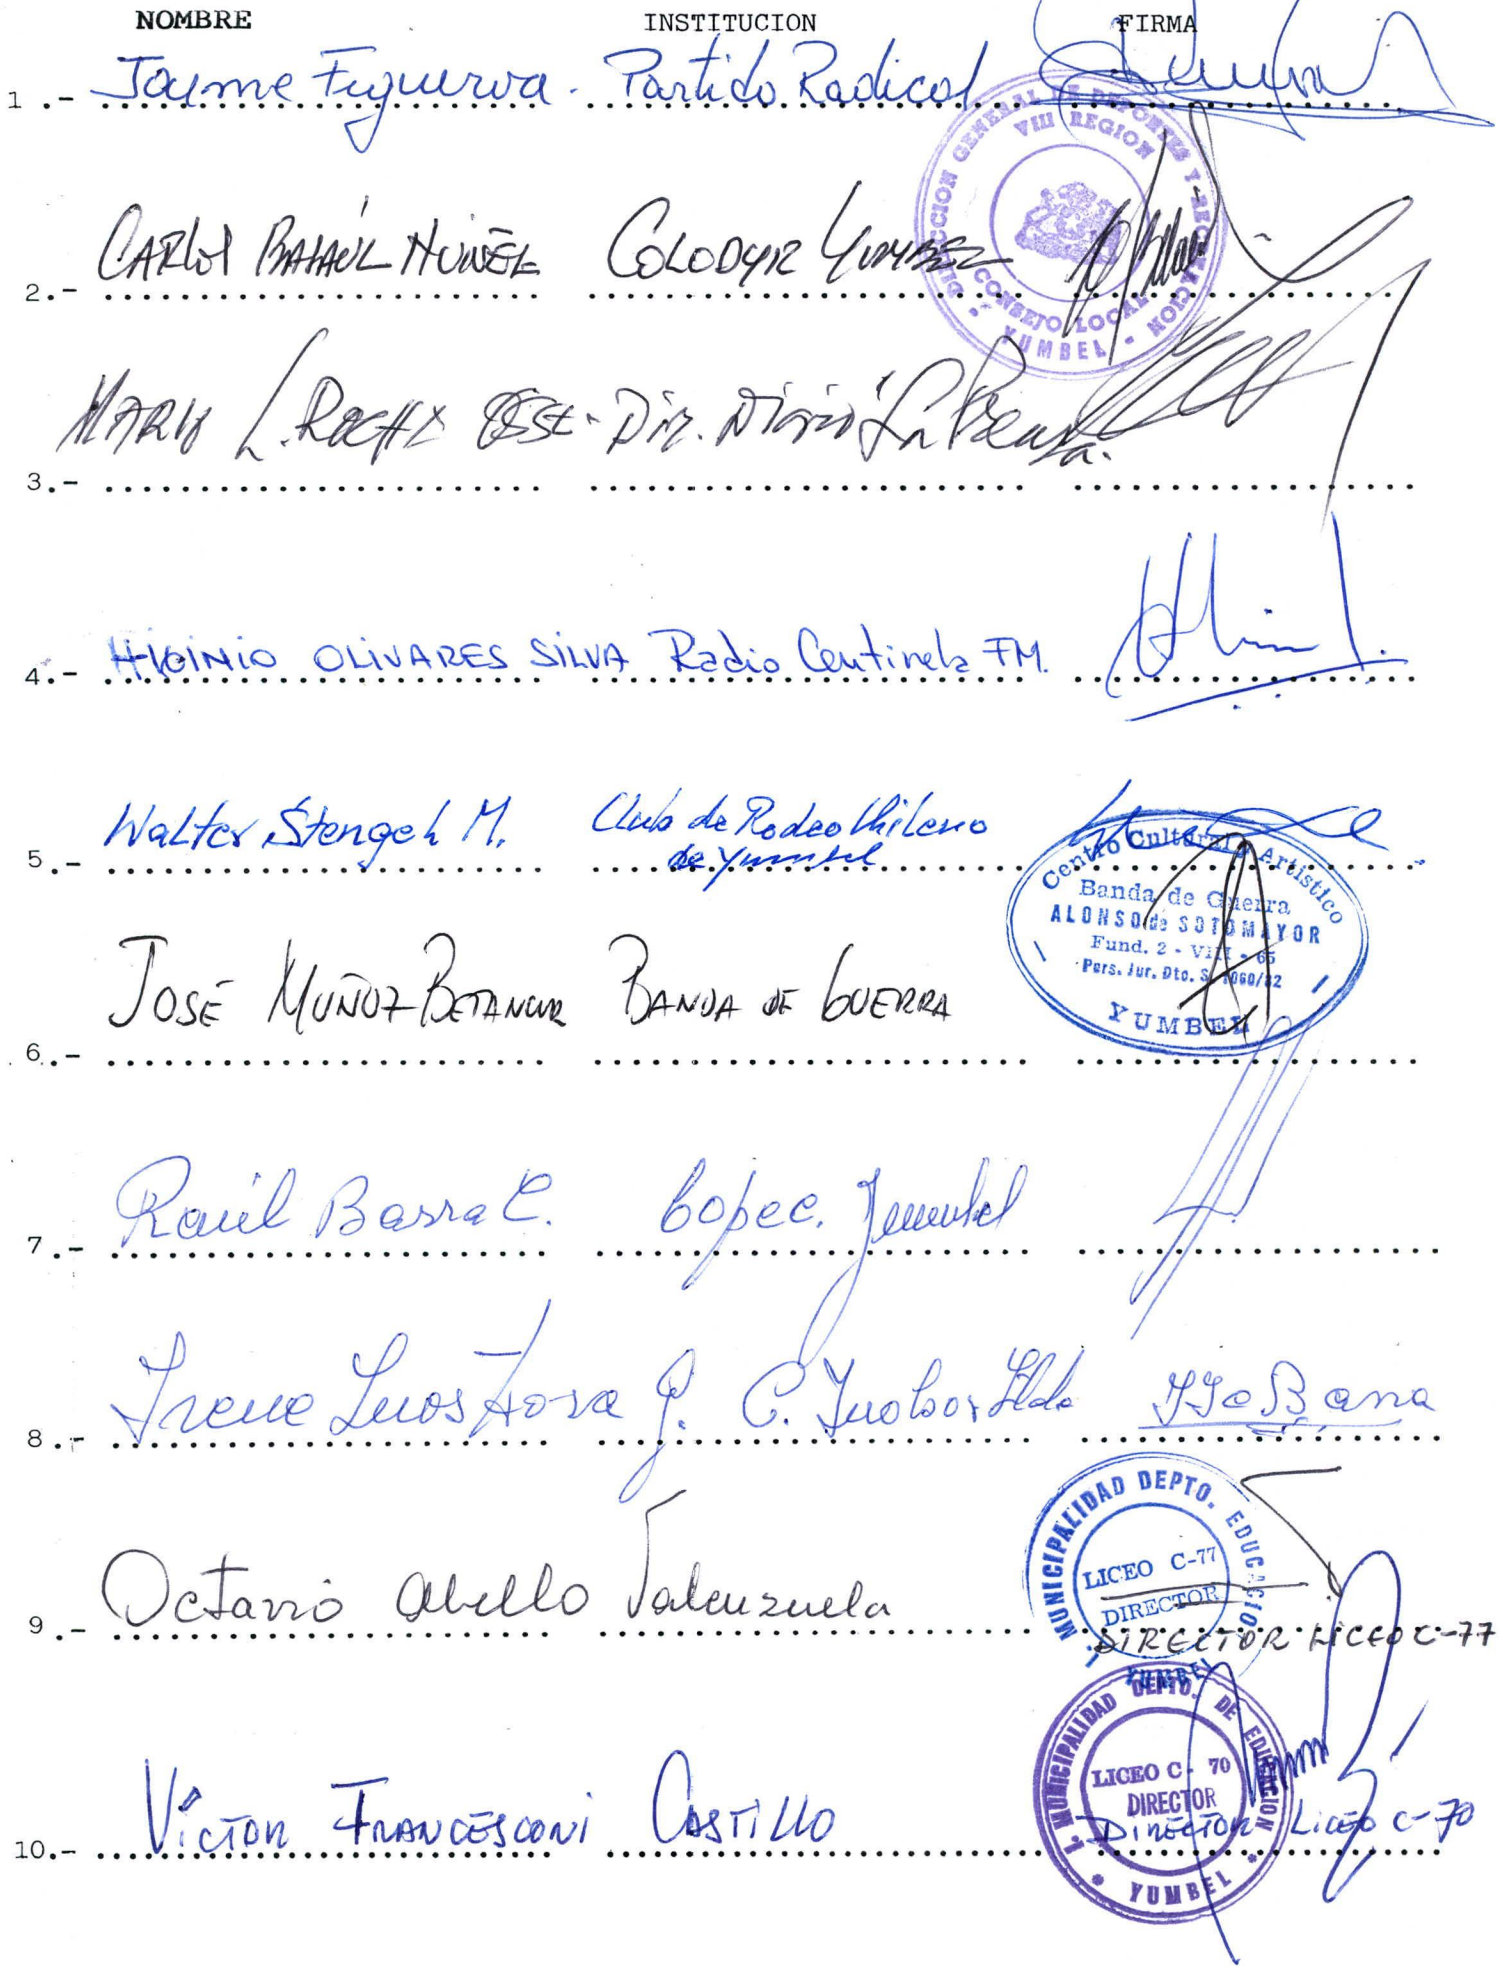 NOMBRE INSTITUCION FIRMA
1.- Jaime Figueroa. Partido Radical
DIRECCION GENERAL DE DEPORTES Y RECREACION
VIII REGION
CONSEJO LOCAL
YUMBEL
2.- CARLOS NUÑEZ COLODYR YUMBEL
3.- MARIO L. ROCHA Dir. Diario La
4.- HIGINIO OLIVARES SILVA Radio Centinela FM.
5.- Walter Stengel M. Club de Rodeo Chileno
de Yumbel
Centro Cultural y Artístico
Banda de Guerra
ALONSO de SOTOMAYOR
Fund. 2 - VIII - 65
Pers. Jur. Dto. S. 1060/82
YUMBEL
6.- JOSÉ MUÑOZ BETANCUR BANDA DE GUERRA
7.- Raúl Barra C. Copec. Yumbel
8.- Irene J. C. Ltda
MUNICIPALIDAD DEPTO. EDUCACION
LICEO C-77
DIRECTOR
YUMBEL
9.- Octavio Abello Valenzuela DIRECTOR LICEO C-77
I. MUNICIPALIDAD DEPTO. DE EDUCACION
LICEO C- 70
DIRECTOR
YUMBEL
10.- VICTOR FRANCESCONI CASTILLO DIRECTOR LICEO C-70